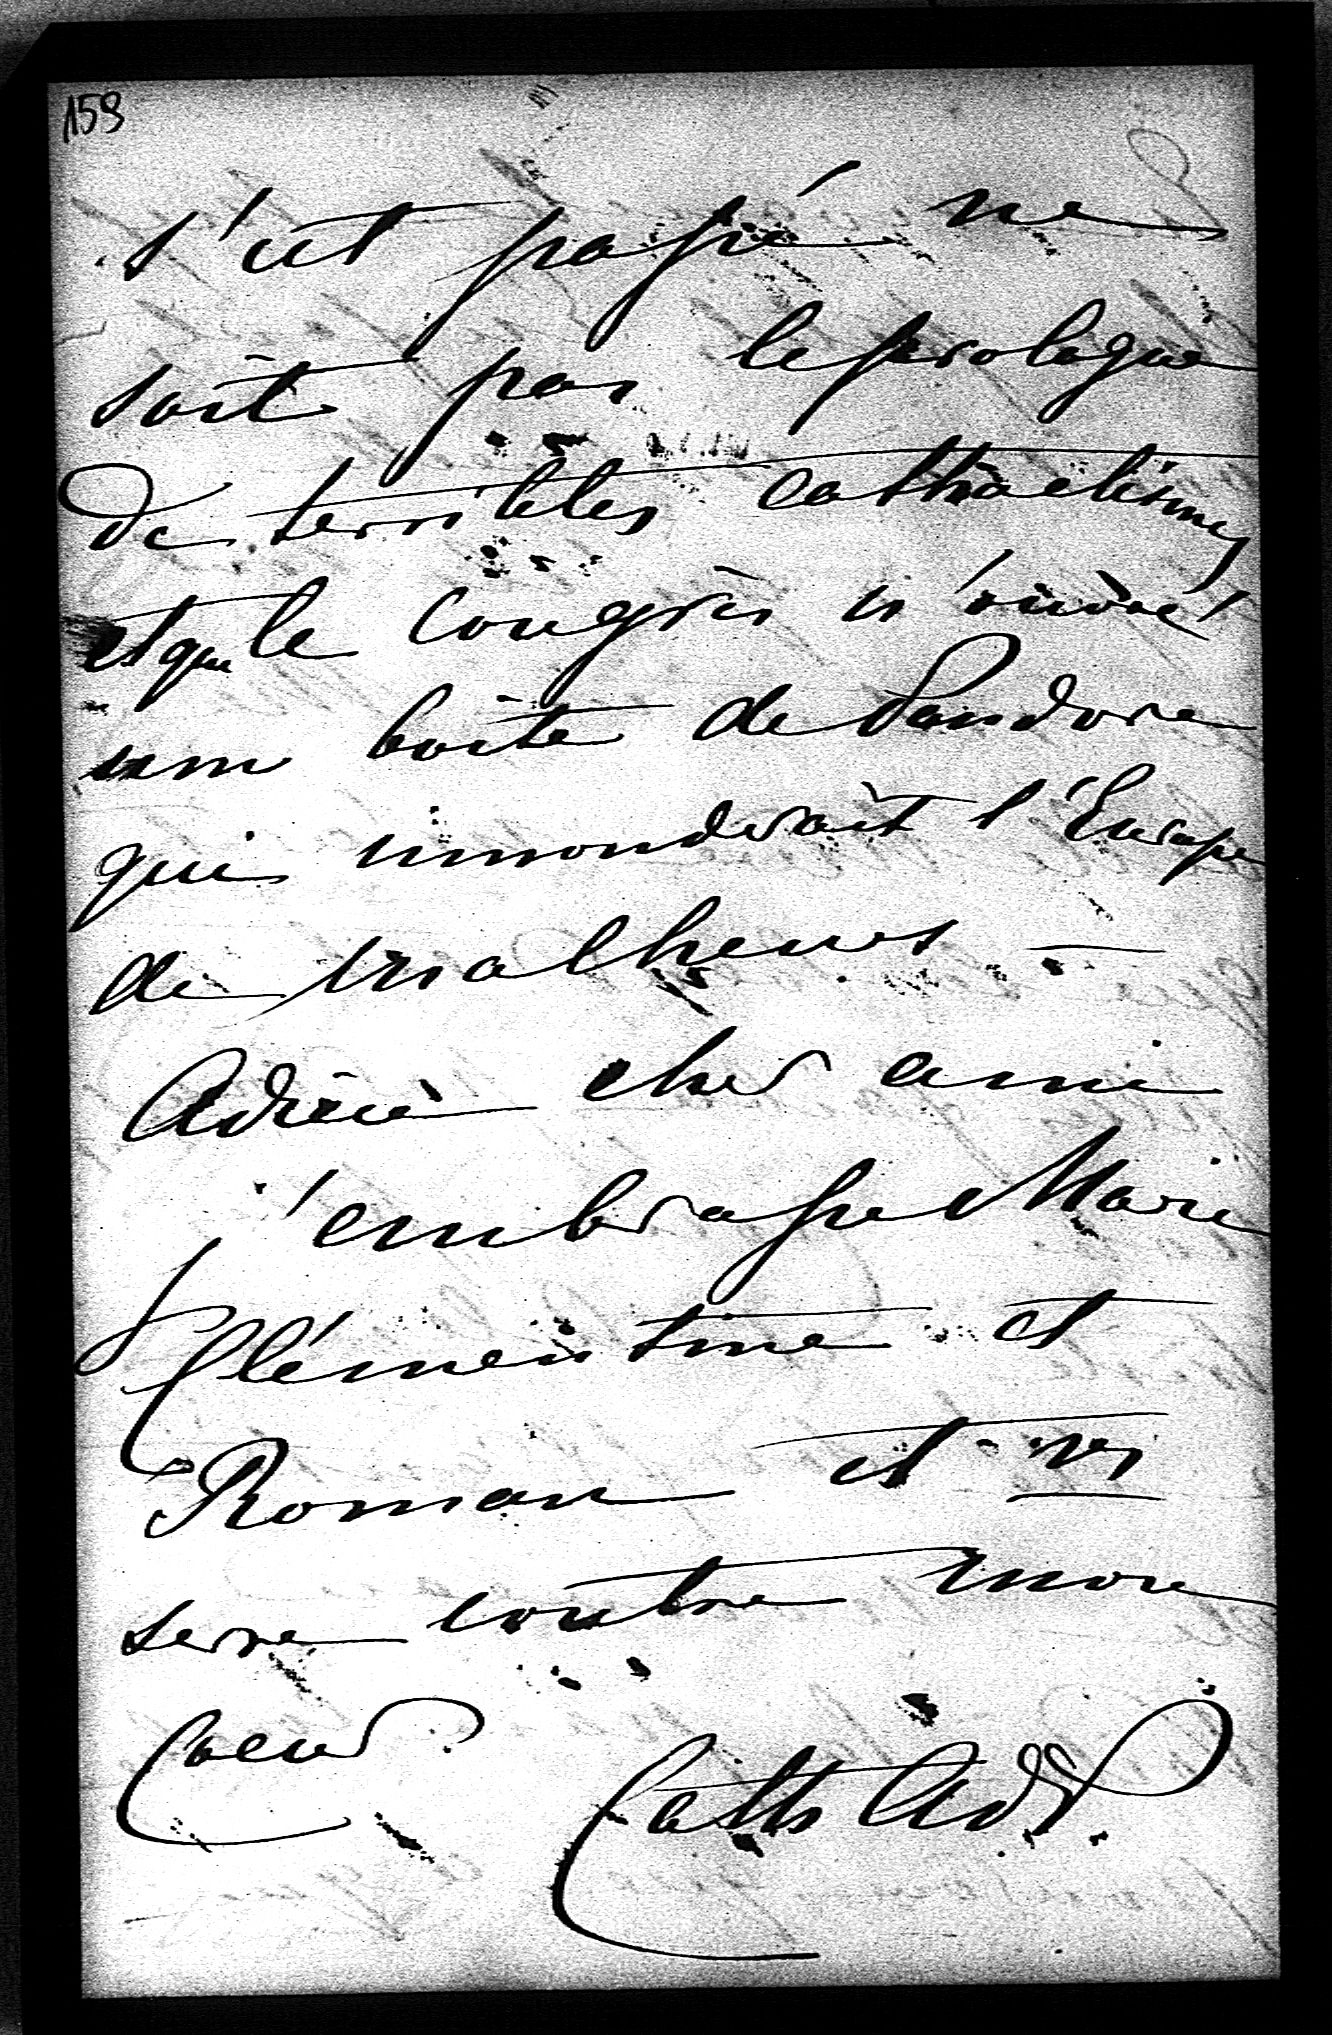 159
s'est passé ne
soit pas le prologue
de terribles cathaclismes
et que le Congrès n'ouvre
une boîte de Pandore
qui innonderait l'Europe
de malheurs —
Adieu cher ami
j'embrasse Marie
Clémentine et
Roman et vs
serre contre mon
Coeur
Cath Ad P.